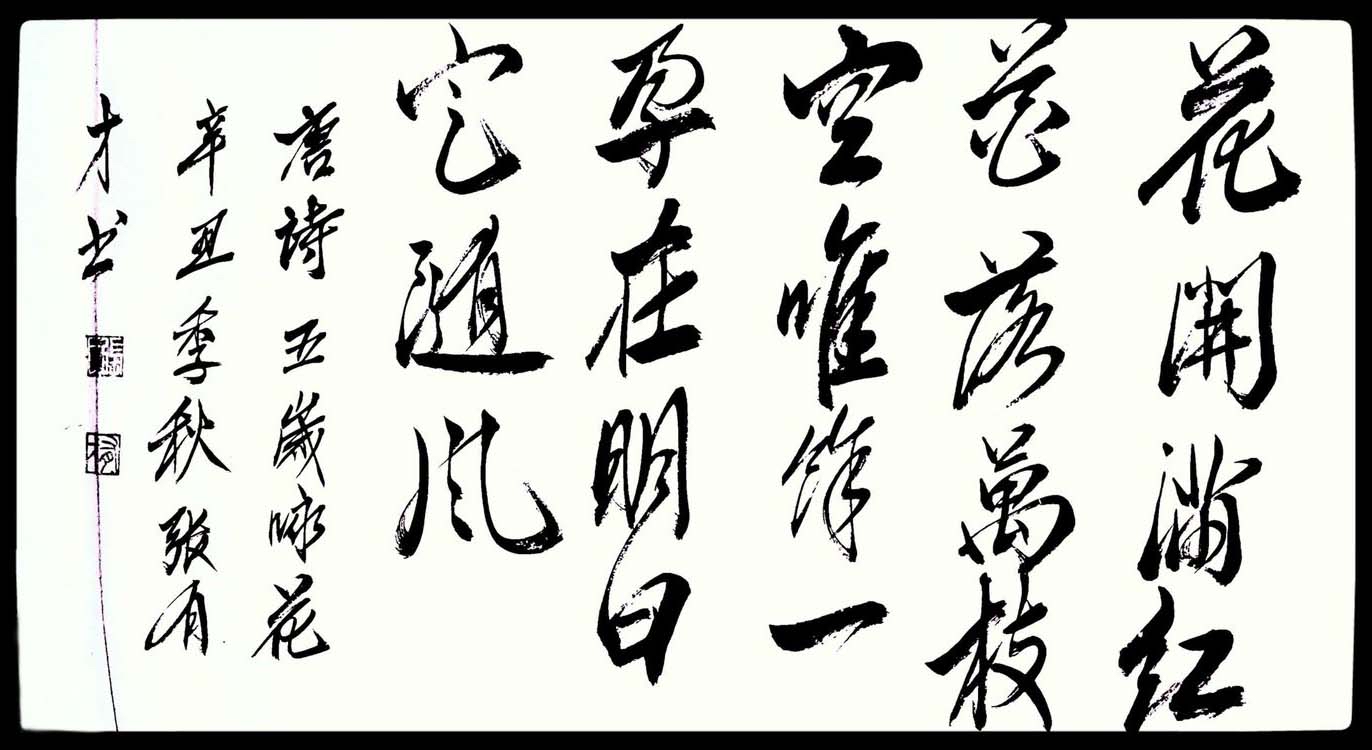 花開滿红
花落萬枝
空唯餘一
朵在明日
定隨風
唐詩五歲咏花
辛丑季秋張有
才书